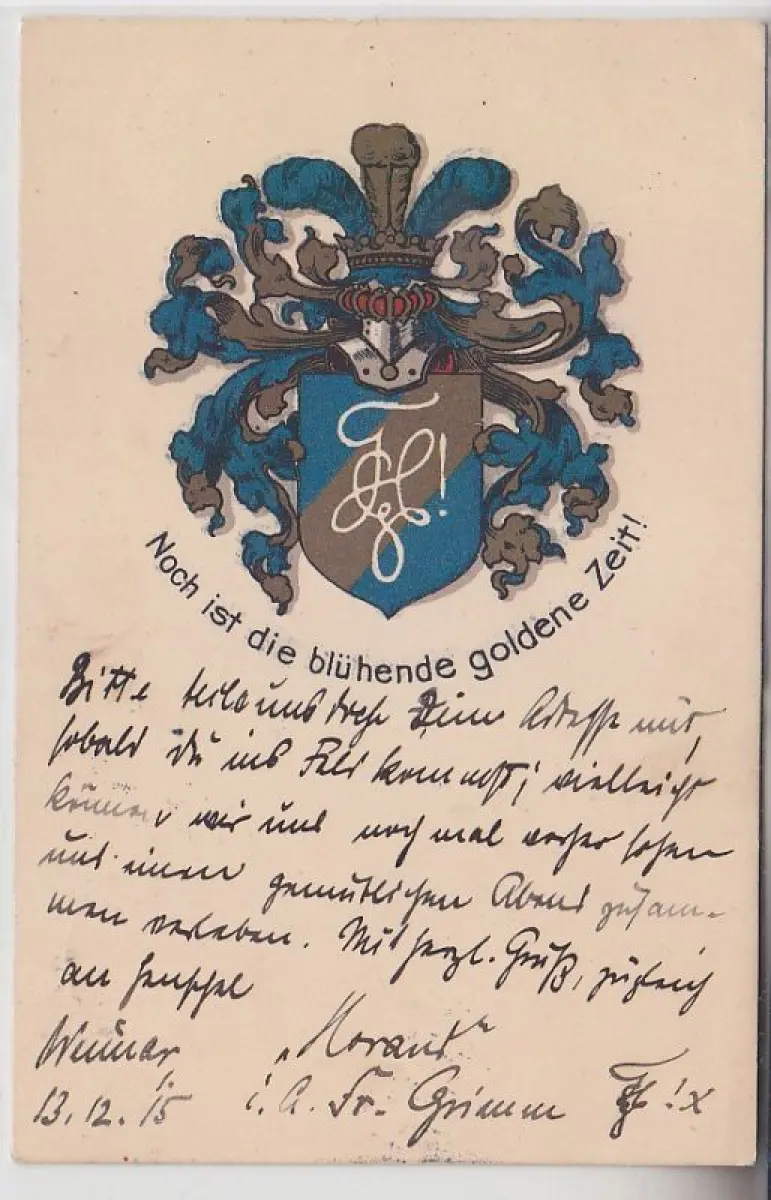 Noch ist die blühende goldene Zeit!
Bitte teile uns doch Deine Adresse mit,
sobald Du ins Feld kommst; vielleicht
können wir uns noch mal vorher sehen
und einen gemütlichen Abend zusam-
men verleben. Mit herzl. Gruß, zugleich
an Henschel
Weimar, „Morand“
13.12.15 i. A. Fr. Grimm